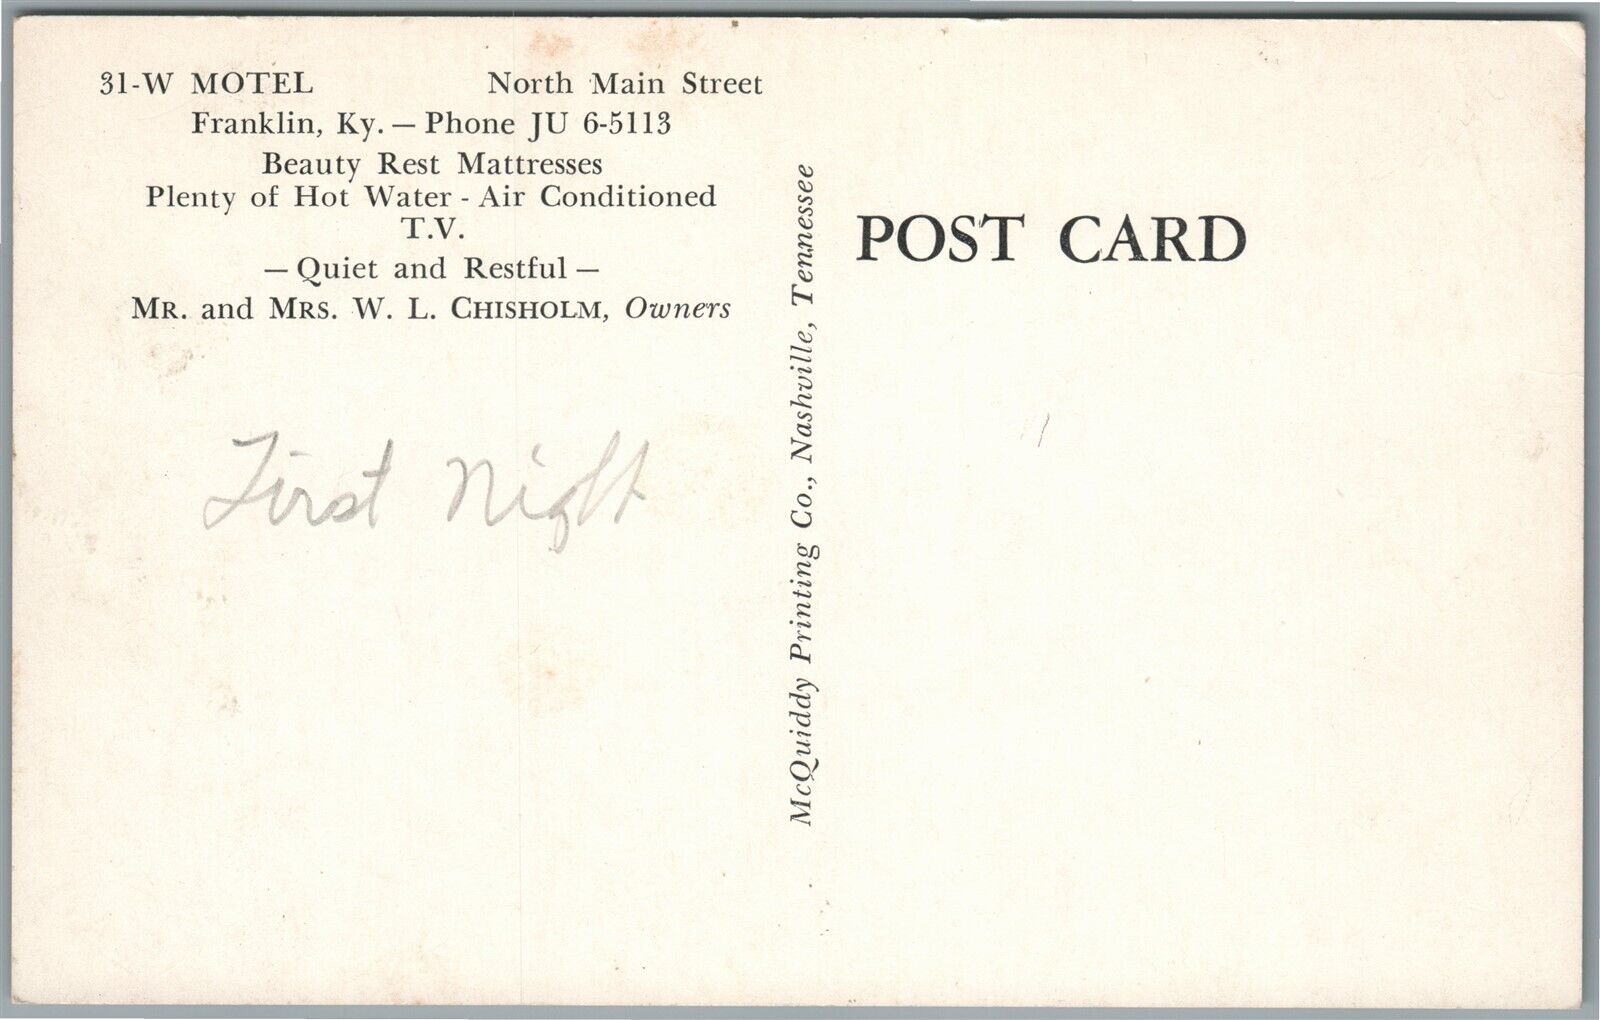 31-W MOTEL North Main Street
Franklin, Ky. — Phone JU 6-5113
Beauty Rest Mattresses
Plenty of Hot Water - Air Conditioned
T.V.
— Quiet and Restful —
MR. and MRS. W. L. CHISHOLM, Owners
First Night
McQuiddy Printing Co., Nashville, Tennessee
POST CARD